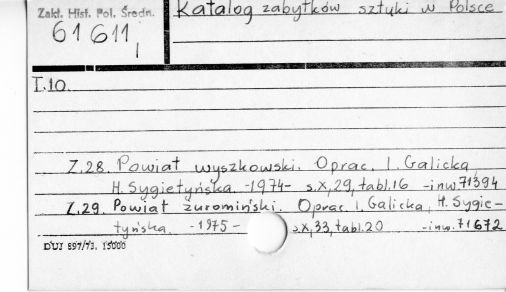 Zakł. Hist. Pol. Średn.
61 611
I
Katalog zabytków sztuki w Polsce
T.10.
Z.28. Powiat wyszkowski. Oprac. I. Galicka,
H. Sygietyńska. -1974- s.X,29, tabl.16 -inw.71394
Z.29. Powiat żuromiński. Oprac. I. Galicka, H. Sygie-
tyńska. -1975- s.X,33, tabl.20 -inw.71672
DUJ 897/73. 15000